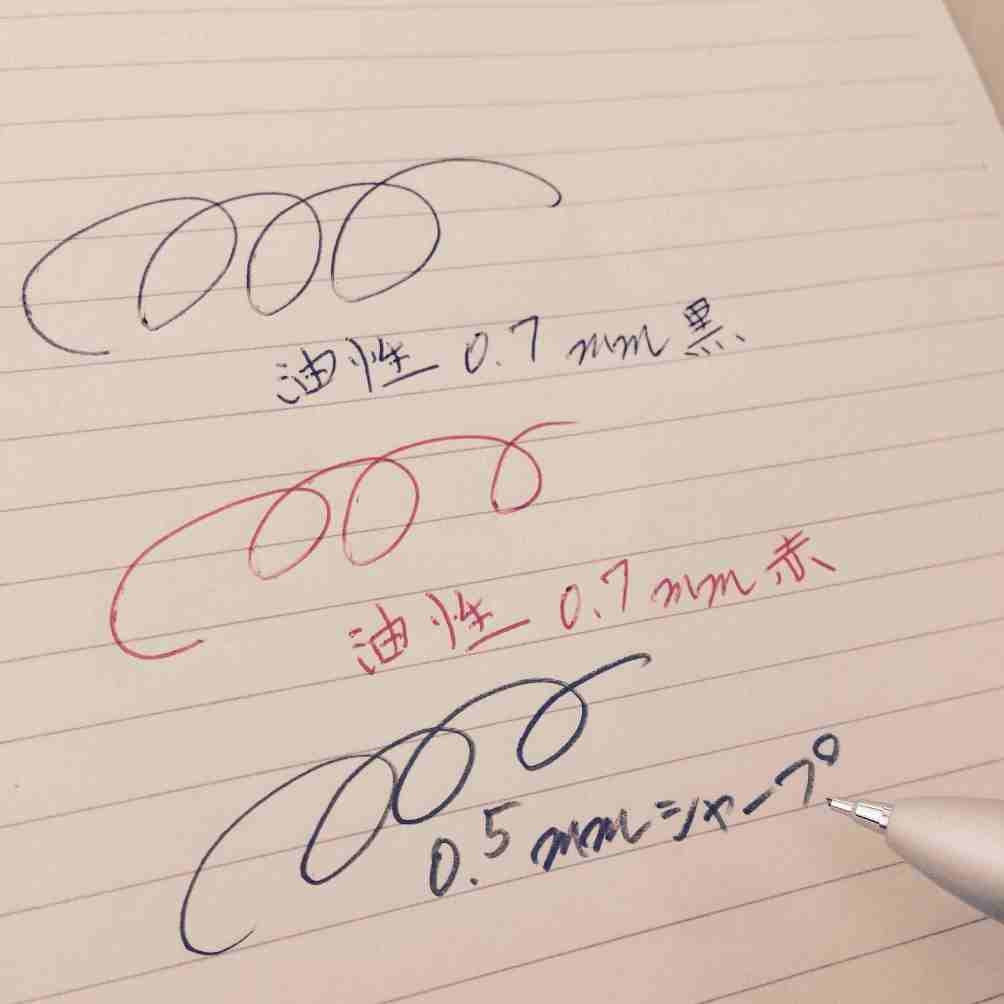 油性 0.7 mm 黒
油性 0.7 mm 赤
0.5 mm シャープ